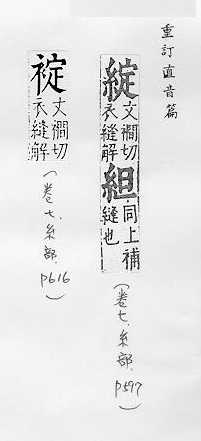 重訂直音篇
綻
文襉切
衣縫解
䋎
同上補
縫也
（卷七、糸部、
p597）
丈襉切
衣縫解
（卷七、糸部、
p616）